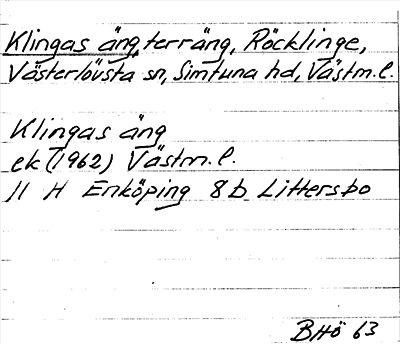 Klingas äng, terräng, Röcklinge,
Västerlövsta sn, Simtuna hd, Västm.l.
Klingas äng
ek (1962) Västm.l.
11 H Enköping 8b Littersbo
BHö 63